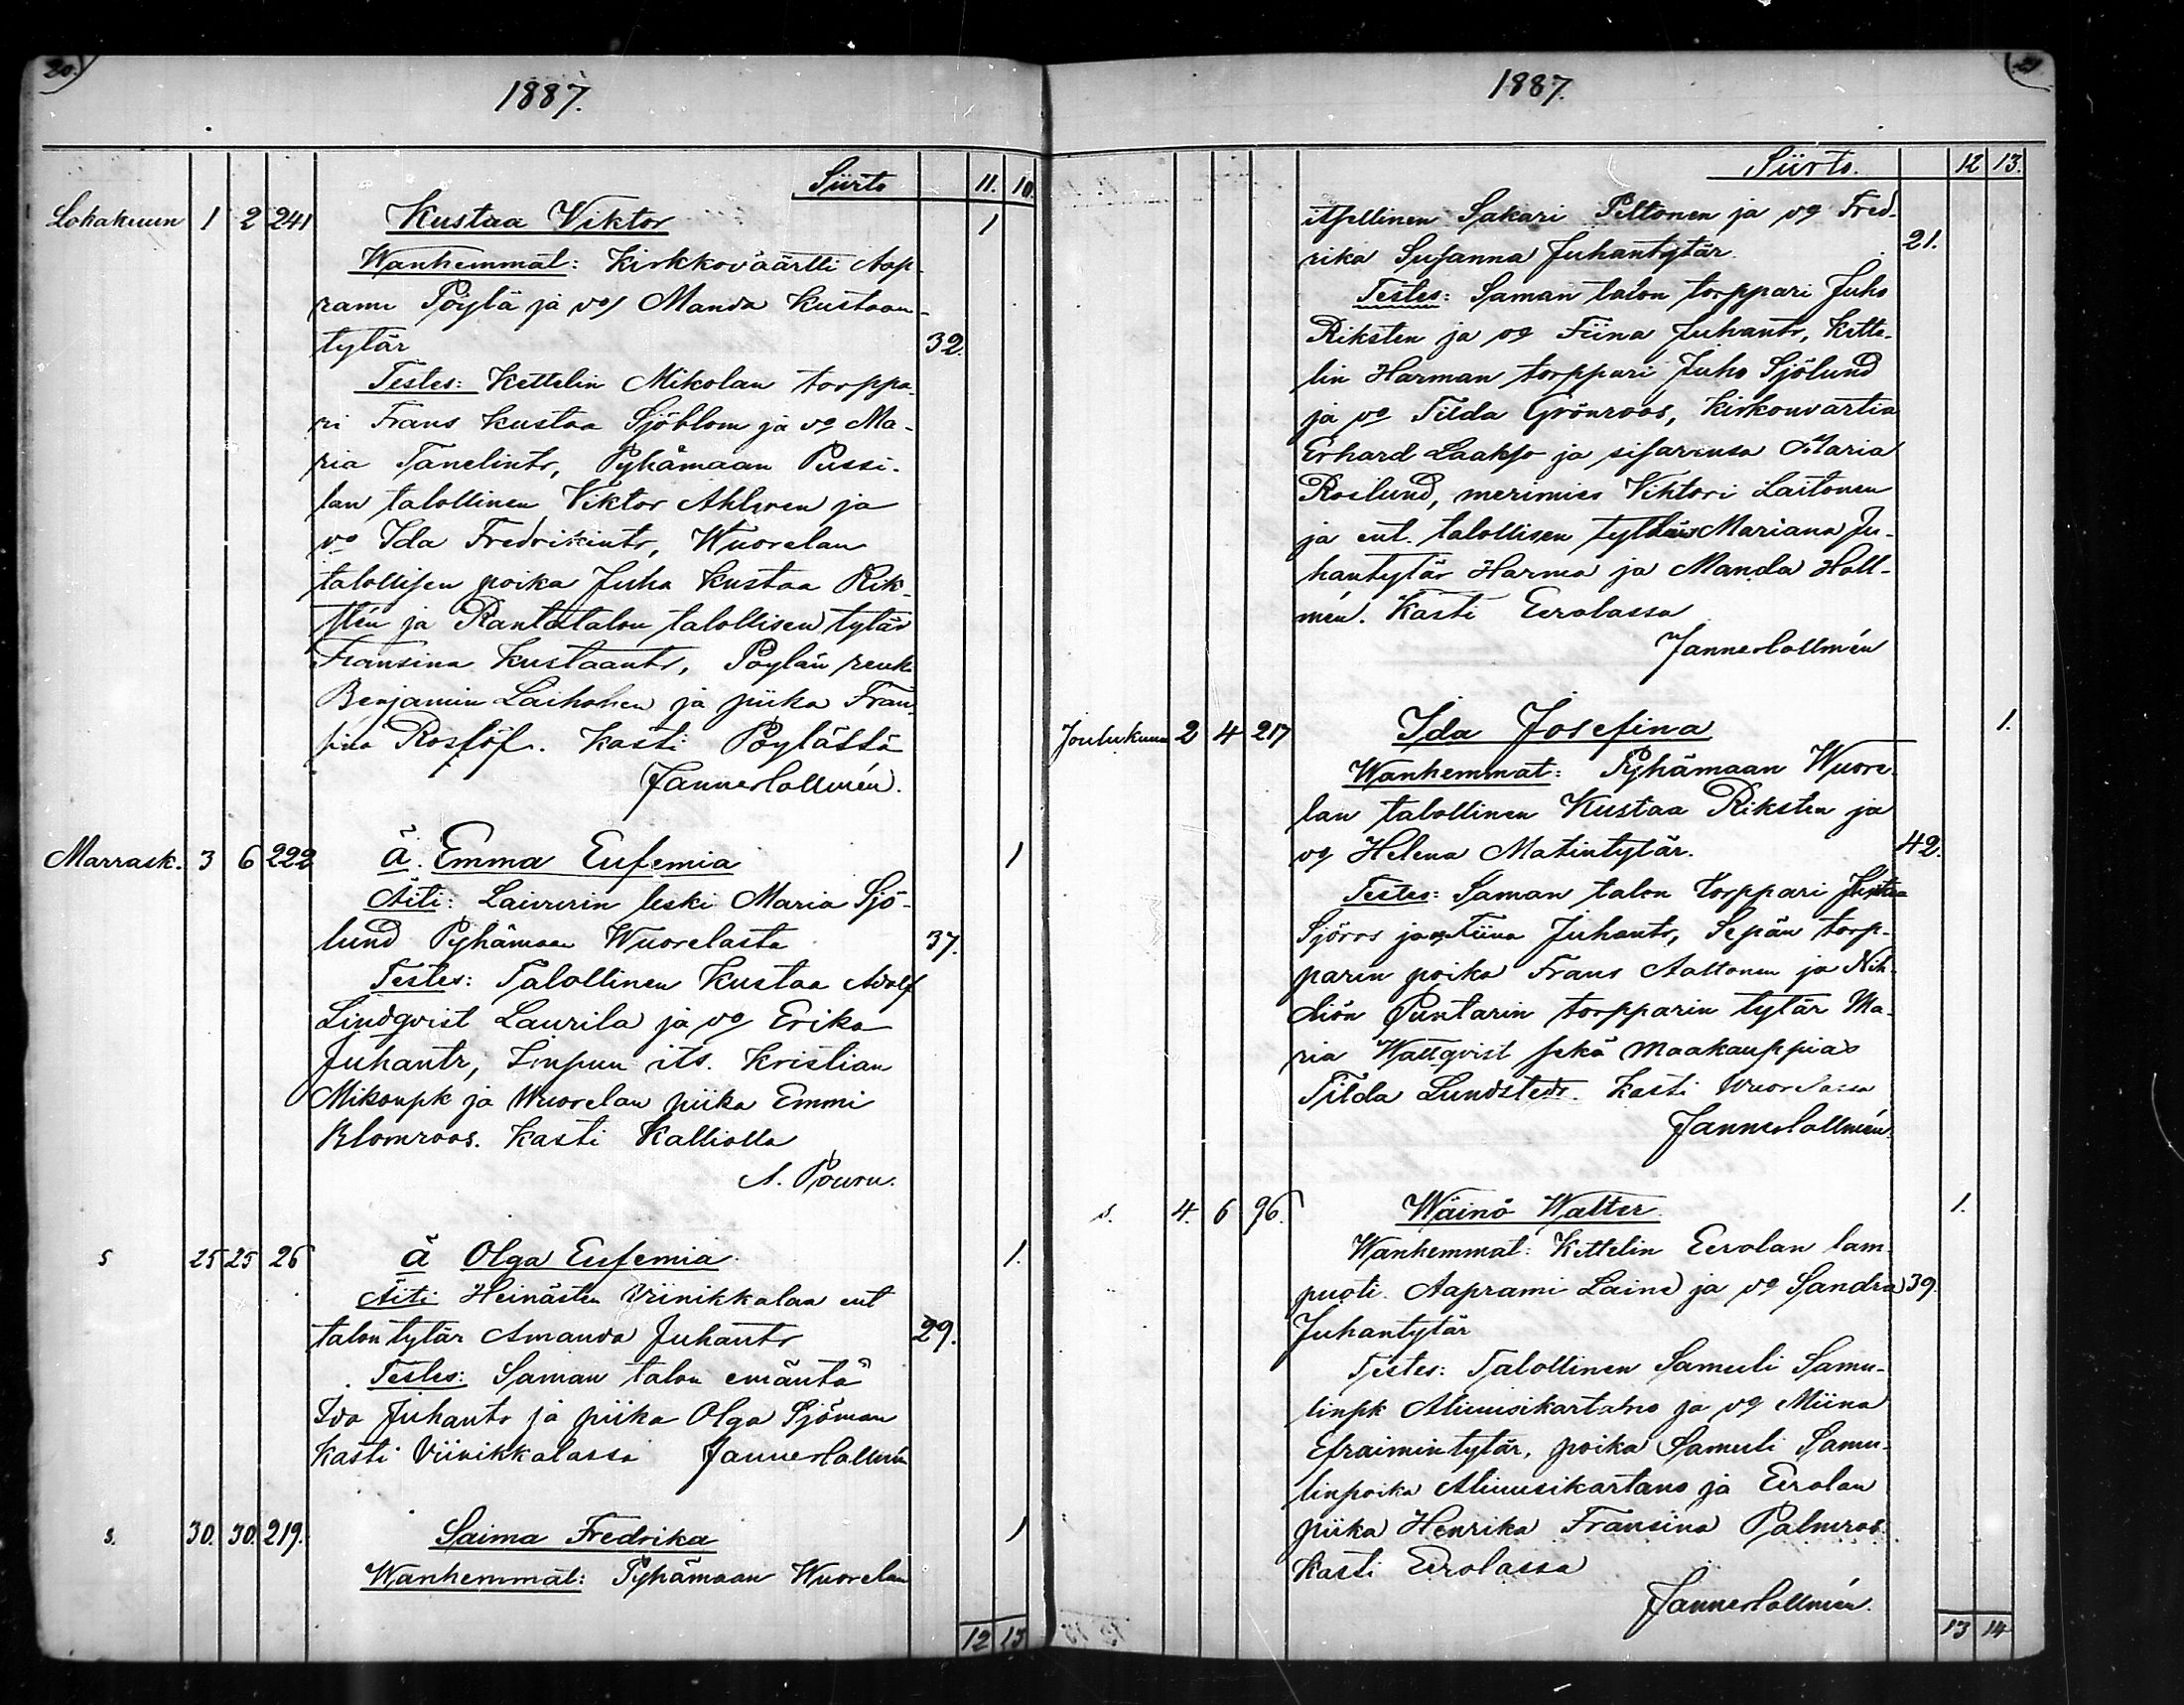 20.
1887.
Siirto 11. 10.
Lokakuun 1 2 241 Kustaa Viktor 1
Wanhemmat: Kirkkoväärtti Aap-
rami Pöytä ja vo Manda Kustaan-
tytär 32.
Testes: Kettelin Mikolan torppa-
ri Frans Kustaa Sjöblom ja vo Ma-
ria Tanelintr, Pyhämaan Pussi-
lan talollinen Viktor Ahlgren ja
vo Ida Fredrikintr, Wuorelan
talollisen poika Juha Kustaa Rik-
stén ja Rantatalon talollisen tytär
Fransina Kustaantr, Pöylän renki
Benjamin Laihonen ja piika Fran-
sina Roslöf. Kasti Pöylässä
Janne Hollmén.
Marrask. 3 6 222 ä. Emma Eufemia 1
Äiti: Laivurin leski Maria Sjö-
lund Pyhämaan Wuorelasta 37.
Testes: Talollinen Kustaa Adolf
Lindqvist Laurila ja vo Erika
Juhantr, its. Kristian
Mikonpk ja Wuorelan piika Emmi
Blomroos. Kasti Kalliolla
A. Pouru.
s 25 25 26 ä Olga Eufemia 1.
Äiti Heinästen Viinikkalan ent
talon tytär Amanda Juhantr 29.
Testes: Saman talon emäntä
Ida Juhantr ja piika Olga Sjöman
Kasti Viinikkalassa Janne Hollmén
s. 30. 30. 219. Saima Fredrika 1
Wanhemmat: Pyhämaan Wuorelan
12 13
21
1887.
Siirto. 12 13.
itsellinen Sakari Peltonen ja vo Fred-
rika Susanna Juhantytär 21.
Testes: Saman talon torppari Juho
Riksten ja vo Fiina Juhantr, Kette-
lin Harman torppari Juho Sjölund
ja vo Tilda Grönroos, Kirkonvartia
Erhard Laakso ja sisarensa Maria
Roslund, merimies Vihtori Laitonen
ja ent. talollisen tyttäret Mariana Ju-
hantytär Harma ja Manda Holl-
mén. Kasti Eerolassa
Janne Hollmén
Joulukuun 2 4 217 Ida Josefina 1.
Wanhemmat: Pyhämaan Wuore-
lan talollinen Kustaa Riksten ja
vo Helena Matintytär. 42.
Testes: Saman talon torppari
Sjöros ja vo Fiina Juhantr, Sepän torp-
parin poika Frans Aaltonen ja Nih-
diön Puntarin torpparin tytär Ma-
ria Wallqvist sekä maakauppias
Tilda Lundstedt. Kasti Wuorelassa
Janne Hollmén.
s. 4. 6 96. Wäinö Walter 1.
Wanhemmat: Kettelin Eerolan lam-
puoti Aaprami Laine ja vo Sandra 39.
Juhantytär
Testes: Talollinen Samuli Samu-
linpk Aliuusikartano ja vo Miina
Efraimintytär, poika Samuli Samu-
linpoika Aliuusikartano ja Eerolan
piika Henrika Fransina Palmros.
Kasti Eerolassa
Janne Hollmén.
13 14